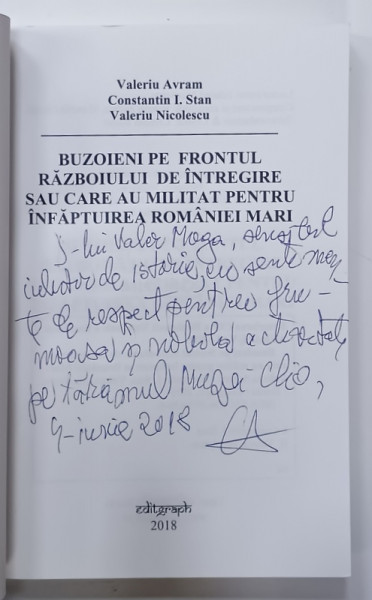 Valeriu Avram
Constantin I. Stan
Valeriu Nicolescu
BUZOIENI PE FRONTUL
RĂZBOIULUI DE ÎNTREGIRE
SAU CARE AU MILITAT PENTRU
ÎNFĂPTUIREA ROMÂNIEI MARI
D-lui Valer Moga,
iubitor de istorie, cu sentimen-
te de respect pentru fru-
moasa și nobila activitate
pe tărâmul Muzei Clio,
9-iunie 2018
editgraph
2018